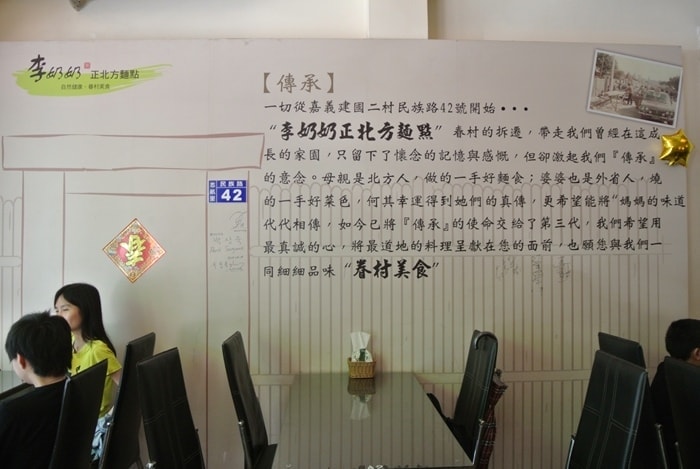 李奶奶 正北方麵點
自然健康·眷村美食
【傳承】
一切從嘉義建國二村民族路42號開始···
“李奶奶正北方麵點”眷村的拆遷，帶走我們曾經在這成
長的家園，只留下了懷念的記憶與感慨，但卻激起我們『傳承』
的意念。母親是北方人，做的一手好麵食；婆婆也是外省人，燒
的一手好菜色，何其幸運得到她們的真傳，更希望能將“媽媽的味道
代代相傳，如今已將『傳承』的使命交給了第三代，我們希望用
最真誠的心，將最道地的料理呈獻在您的面前，也願您與我們一
同細細品味“眷村美食”
民族路
42
春